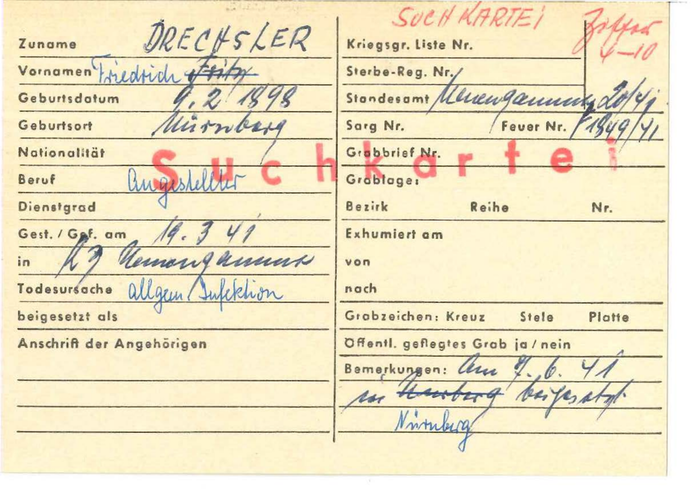 SUCHKARTEI
4-10
Suchkartei
Zuname DRECHSLER
Vornamen Friedrich Fritz
Geburtsdatum 9.2.1898
Geburtsort Nürnberg
Nationalität
Beruf Angestellter
Dienstgrad
Gest./Gef. am 19.3.41
in KZ Neuengamme
Todesursache allgem. Infektion
beigesetzt als
Anschrift der Angehörigen
Kriegsgr. Liste Nr.
Sterbe-Reg. Nr.
Standesamt Neuengamme 20/41
Sarg Nr. Feuer Nr. 1349/41
Grabbrief Nr.
Grablage:
Bezirk Reihe Nr.
Exhumiert am
von
nach
Grabzeichen: Kreuz Stele Platte
Öffentl. gepflegtes Grab ja/nein
Bemerkungen: Am 7.6.41
in beigesetzt
Nürnberg